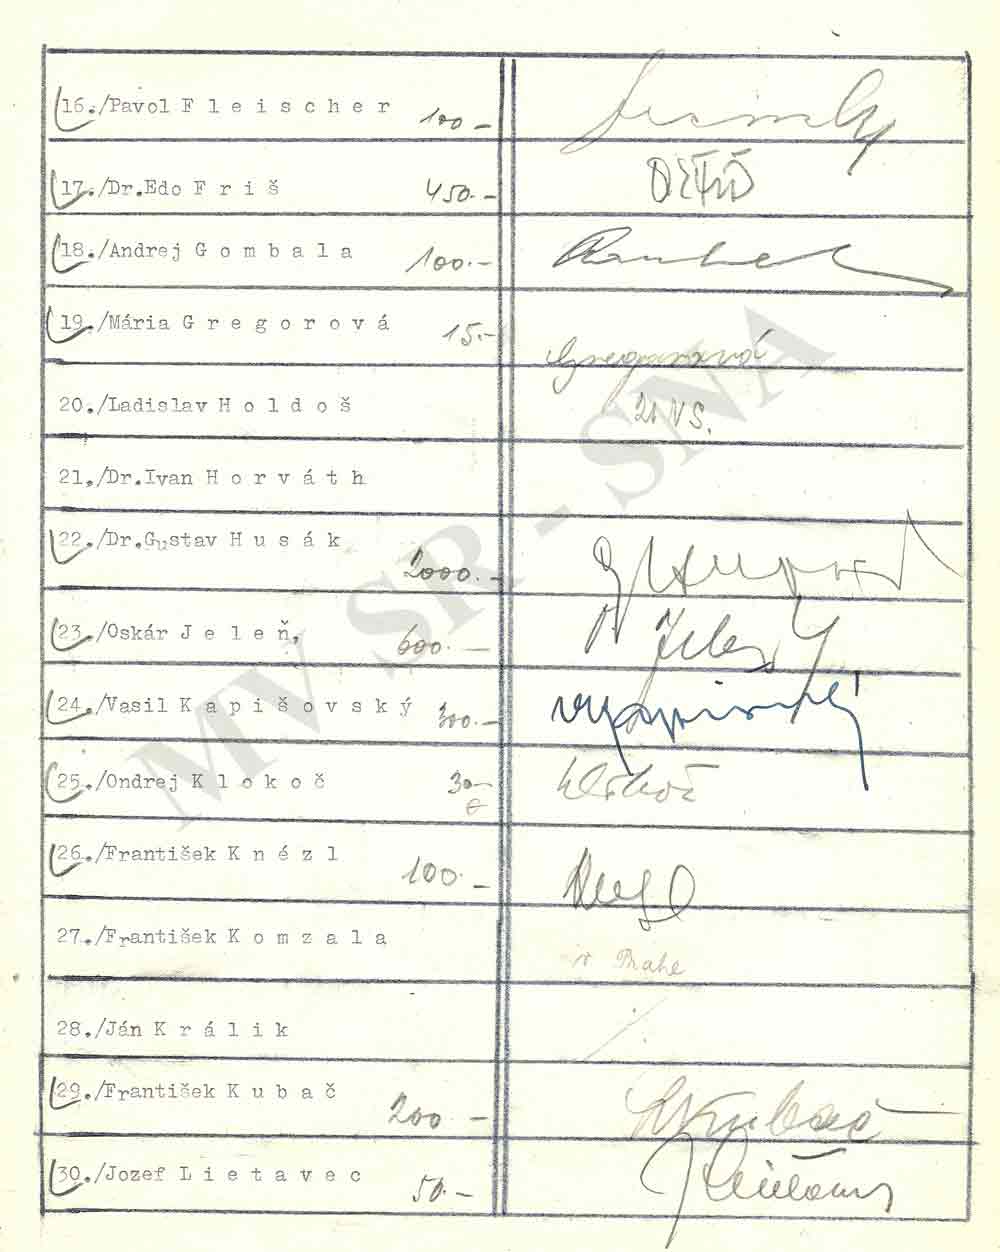 16./Pavol F l e i s c h e r 100.-
17./Dr.Edo F r i š 450.-
18./Andrej G o m b a l a 100.-
19./Mária G r e g o r o v á 15.- Gregorová
20./Ladislav H o l d o š
21./Dr.Ivan H o r v á t h
22./Dr.Gustav H u s á k 2000.-
23./Oskár J e l e ň, 600.-
24./Vasil K a p i š o v s k ý 300.-
25./Ondrej K l o k o č 30.- Klokoč
26./František K n é z l 100.-
27./František K o m z a l a v Prahe
28./Ján K r á l i k
29./František K u b a č 200.- Kubač
30./Jozef L i e t a v e c 50.-
MV SR - SNA